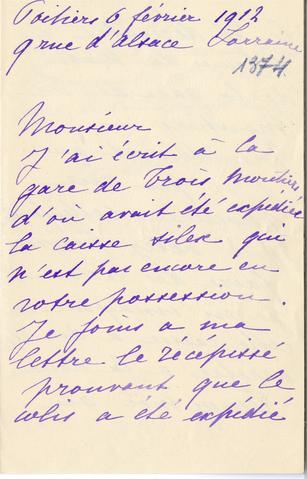 Poitiers 6 février 1912
9 rue d'Alsace Lorraine
1374
Monsieur
J'ai écrit à la
gare de Trois Moutiers
d'où avait été expédiée
la caisse silex qui
n'est pas encore en
votre possession.
Je joins a ma
lettre le récépissé
prouvant que le
colis a été expédié